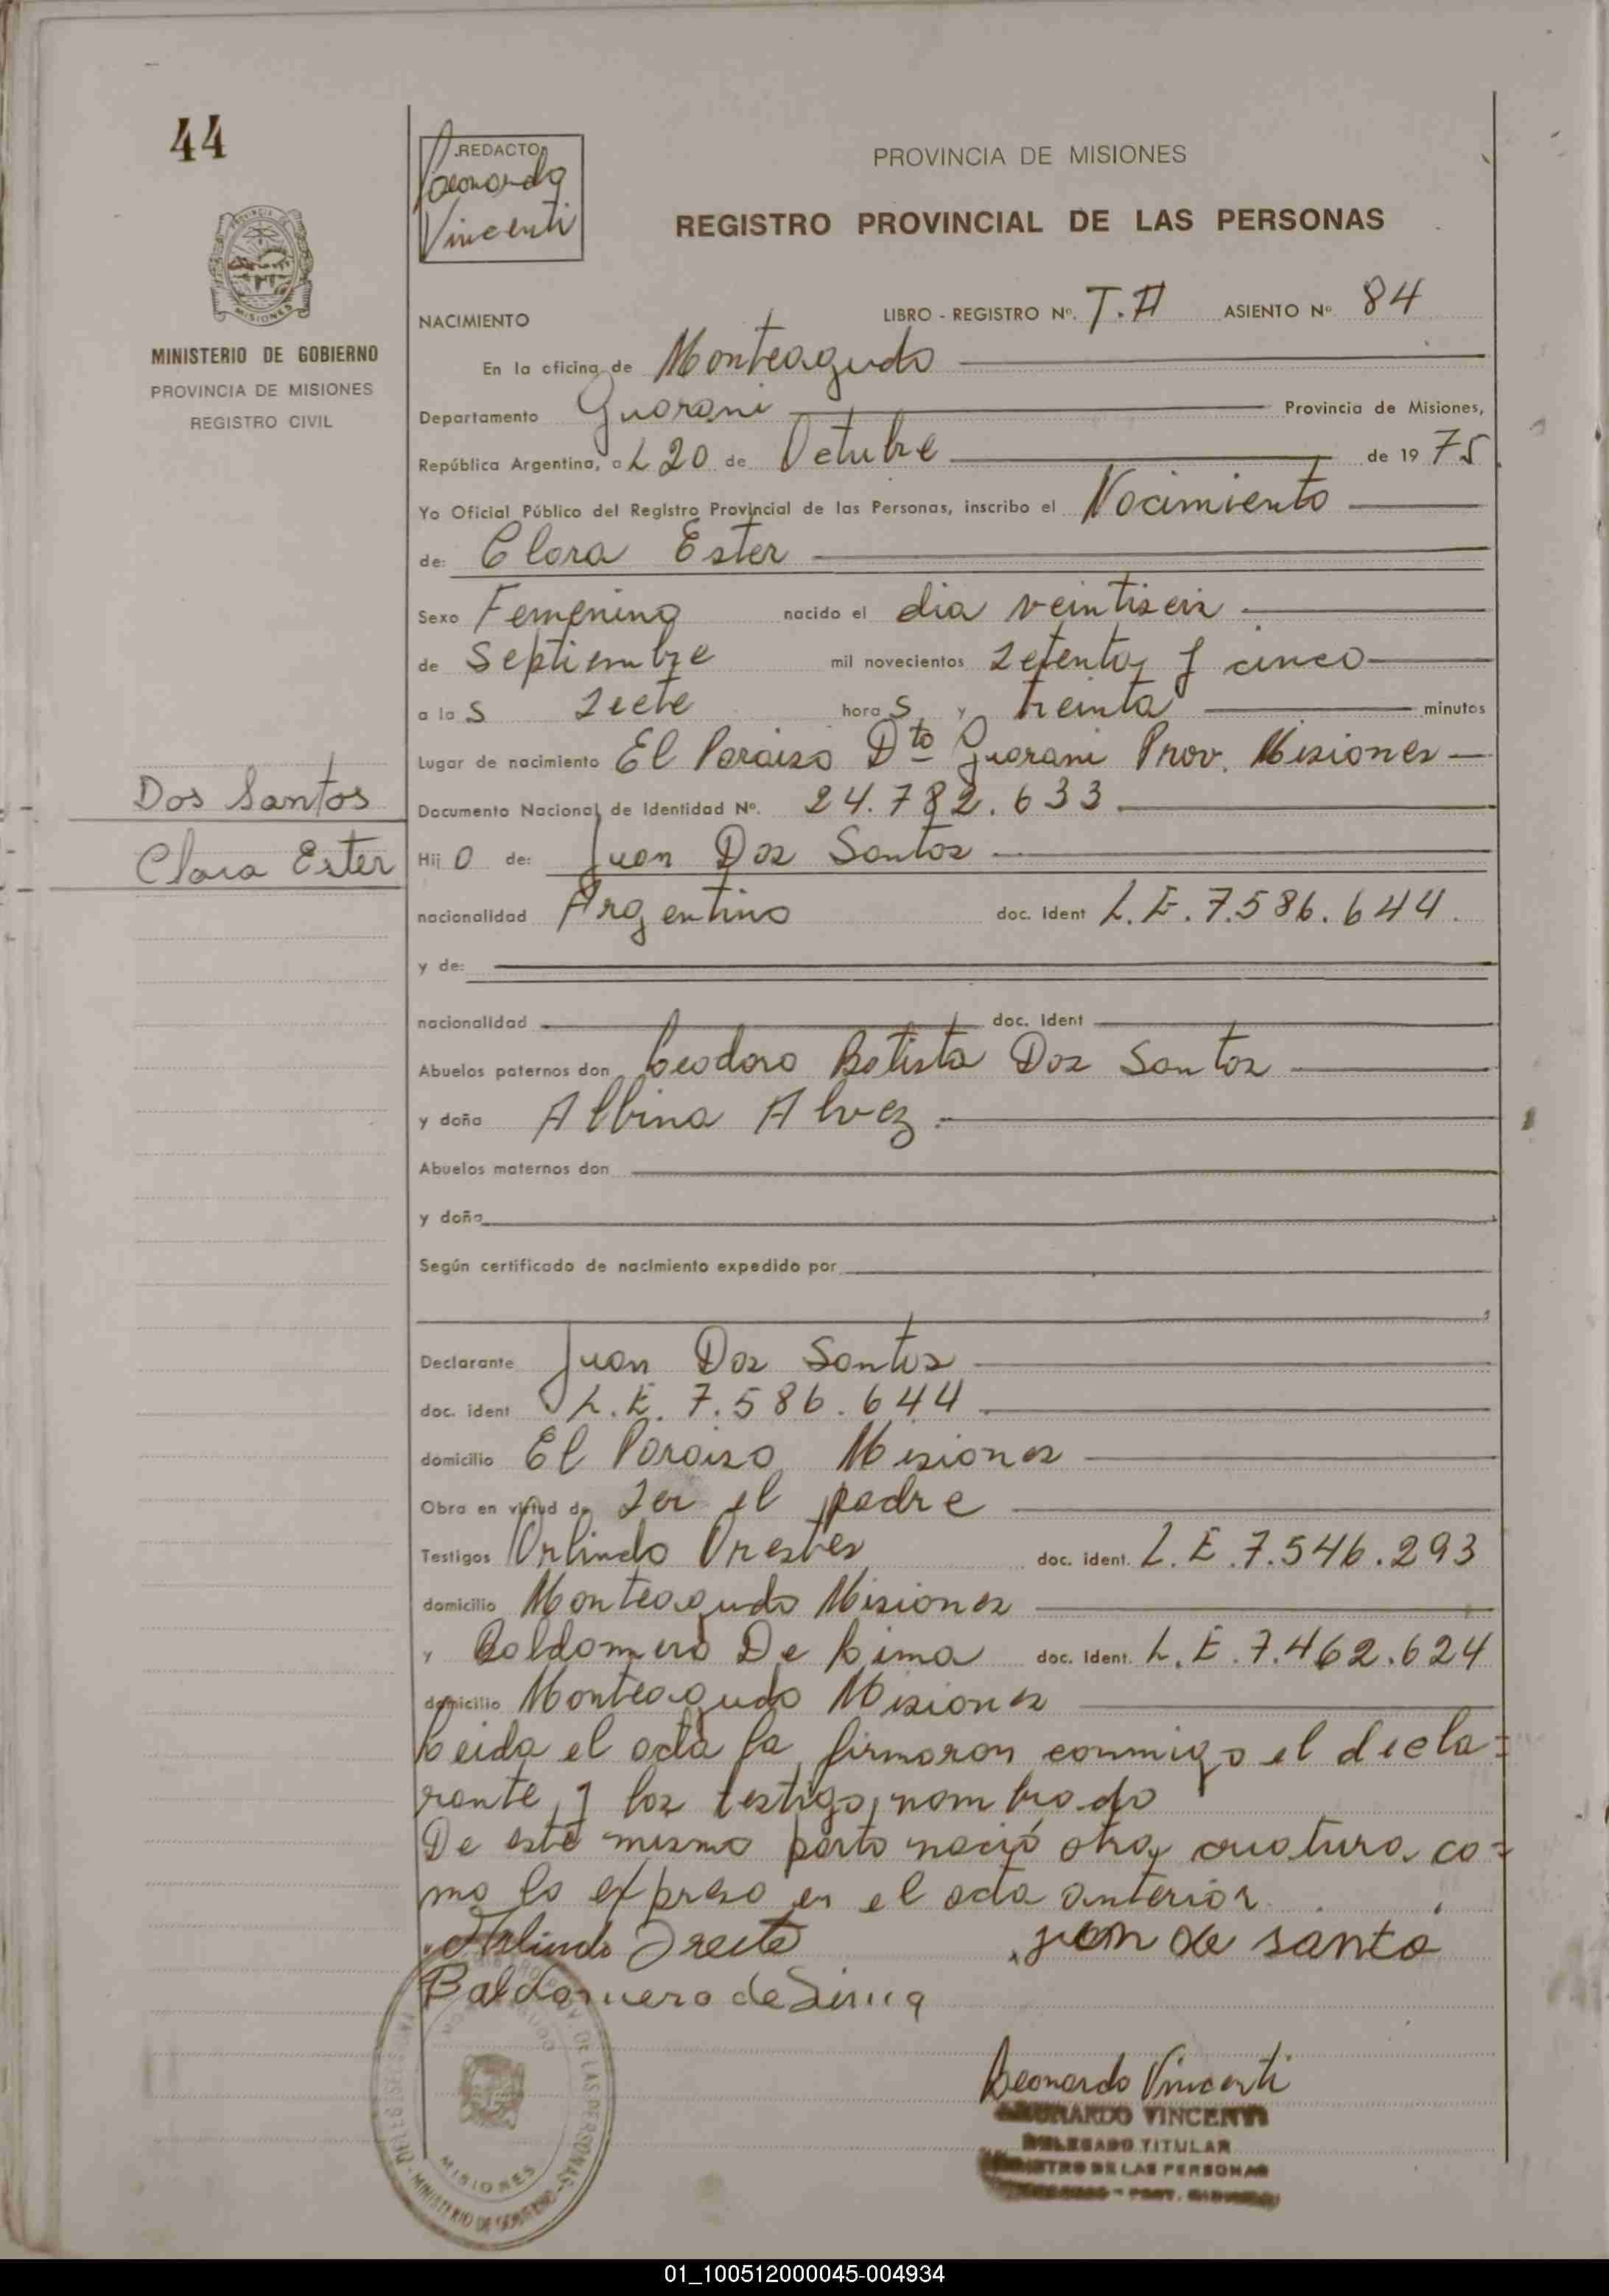 44
REDACTO
Leonardo
Vincenti
PROVINCIA DE MISIONES
REGISTRO PROVINCIAL DE LAS PERSONAS
MISIONES
MINISTERIO DE GOBIERNO
PROVINCIA DE MISIONES
REGISTRO CIVIL
NACIMIENTO LIBRO - REGISTRO Nº. T.A ASIENTO Nº 84
En la oficina de Monteagudo
Departamento Guarani Provincia de Misiones,
República Argentina, a L 20 de Octubre de 19 75
Yo Oficial Público del Registro Provincial de las Personas, inscribo el Nacimiento
de: Clara Ester
Sexo Femenino nacido el dia veintiseis
de Septiembre mil novecientos setenta y cinco
a la S siete hora S y treinta minutos
Lugar de nacimiento El Paraiso Dto Guarani Prov. Misiones
Dos Santos
Clara Ester
Documento Nacional de Identidad Nº. 24.782.633
Hij O de: Juan Dos Santos
nacionalidad Argentino doc. Ident L.E. 7.586.644.
y de:
nacionalidad doc. Ident
Abuelos paternos don Leodoro Batista Dos Santos
y doña Albina Alvez.
Abuelos maternos don
y doña
Según certificado de nacimiento expedido por
Declarante Juan Dos Santos
doc. ident L.E. 7.586.644
domicilio El Paraiso Misiones
Obra en virtud de ser el padre
Testigos Orlindo Orestes doc. ident. L.E. 7.546.293
domicilio Monteagudo Misiones
y Baldomero De Lima doc. Ident. L.E. 7.462.624
domicilio Monteagudo Misiones
Leida el acta la firmaron conmigo el decla=
rante, y los testigo, nombrado
De este mismo parto nació otra criatura co=
mo lo expreso en el acta anterior.
Orlindo Oreste juan de santo
Baldomero de Lima
MISIONES
DE LAS PERSONAS
MINISTERIO DE GOBIERNO
Leonardo Vincenti
LEONARDO VINCENTI
DELEGADO TITULAR
REGISTRO DE LAS PERSONAS
01_100512000045-004934